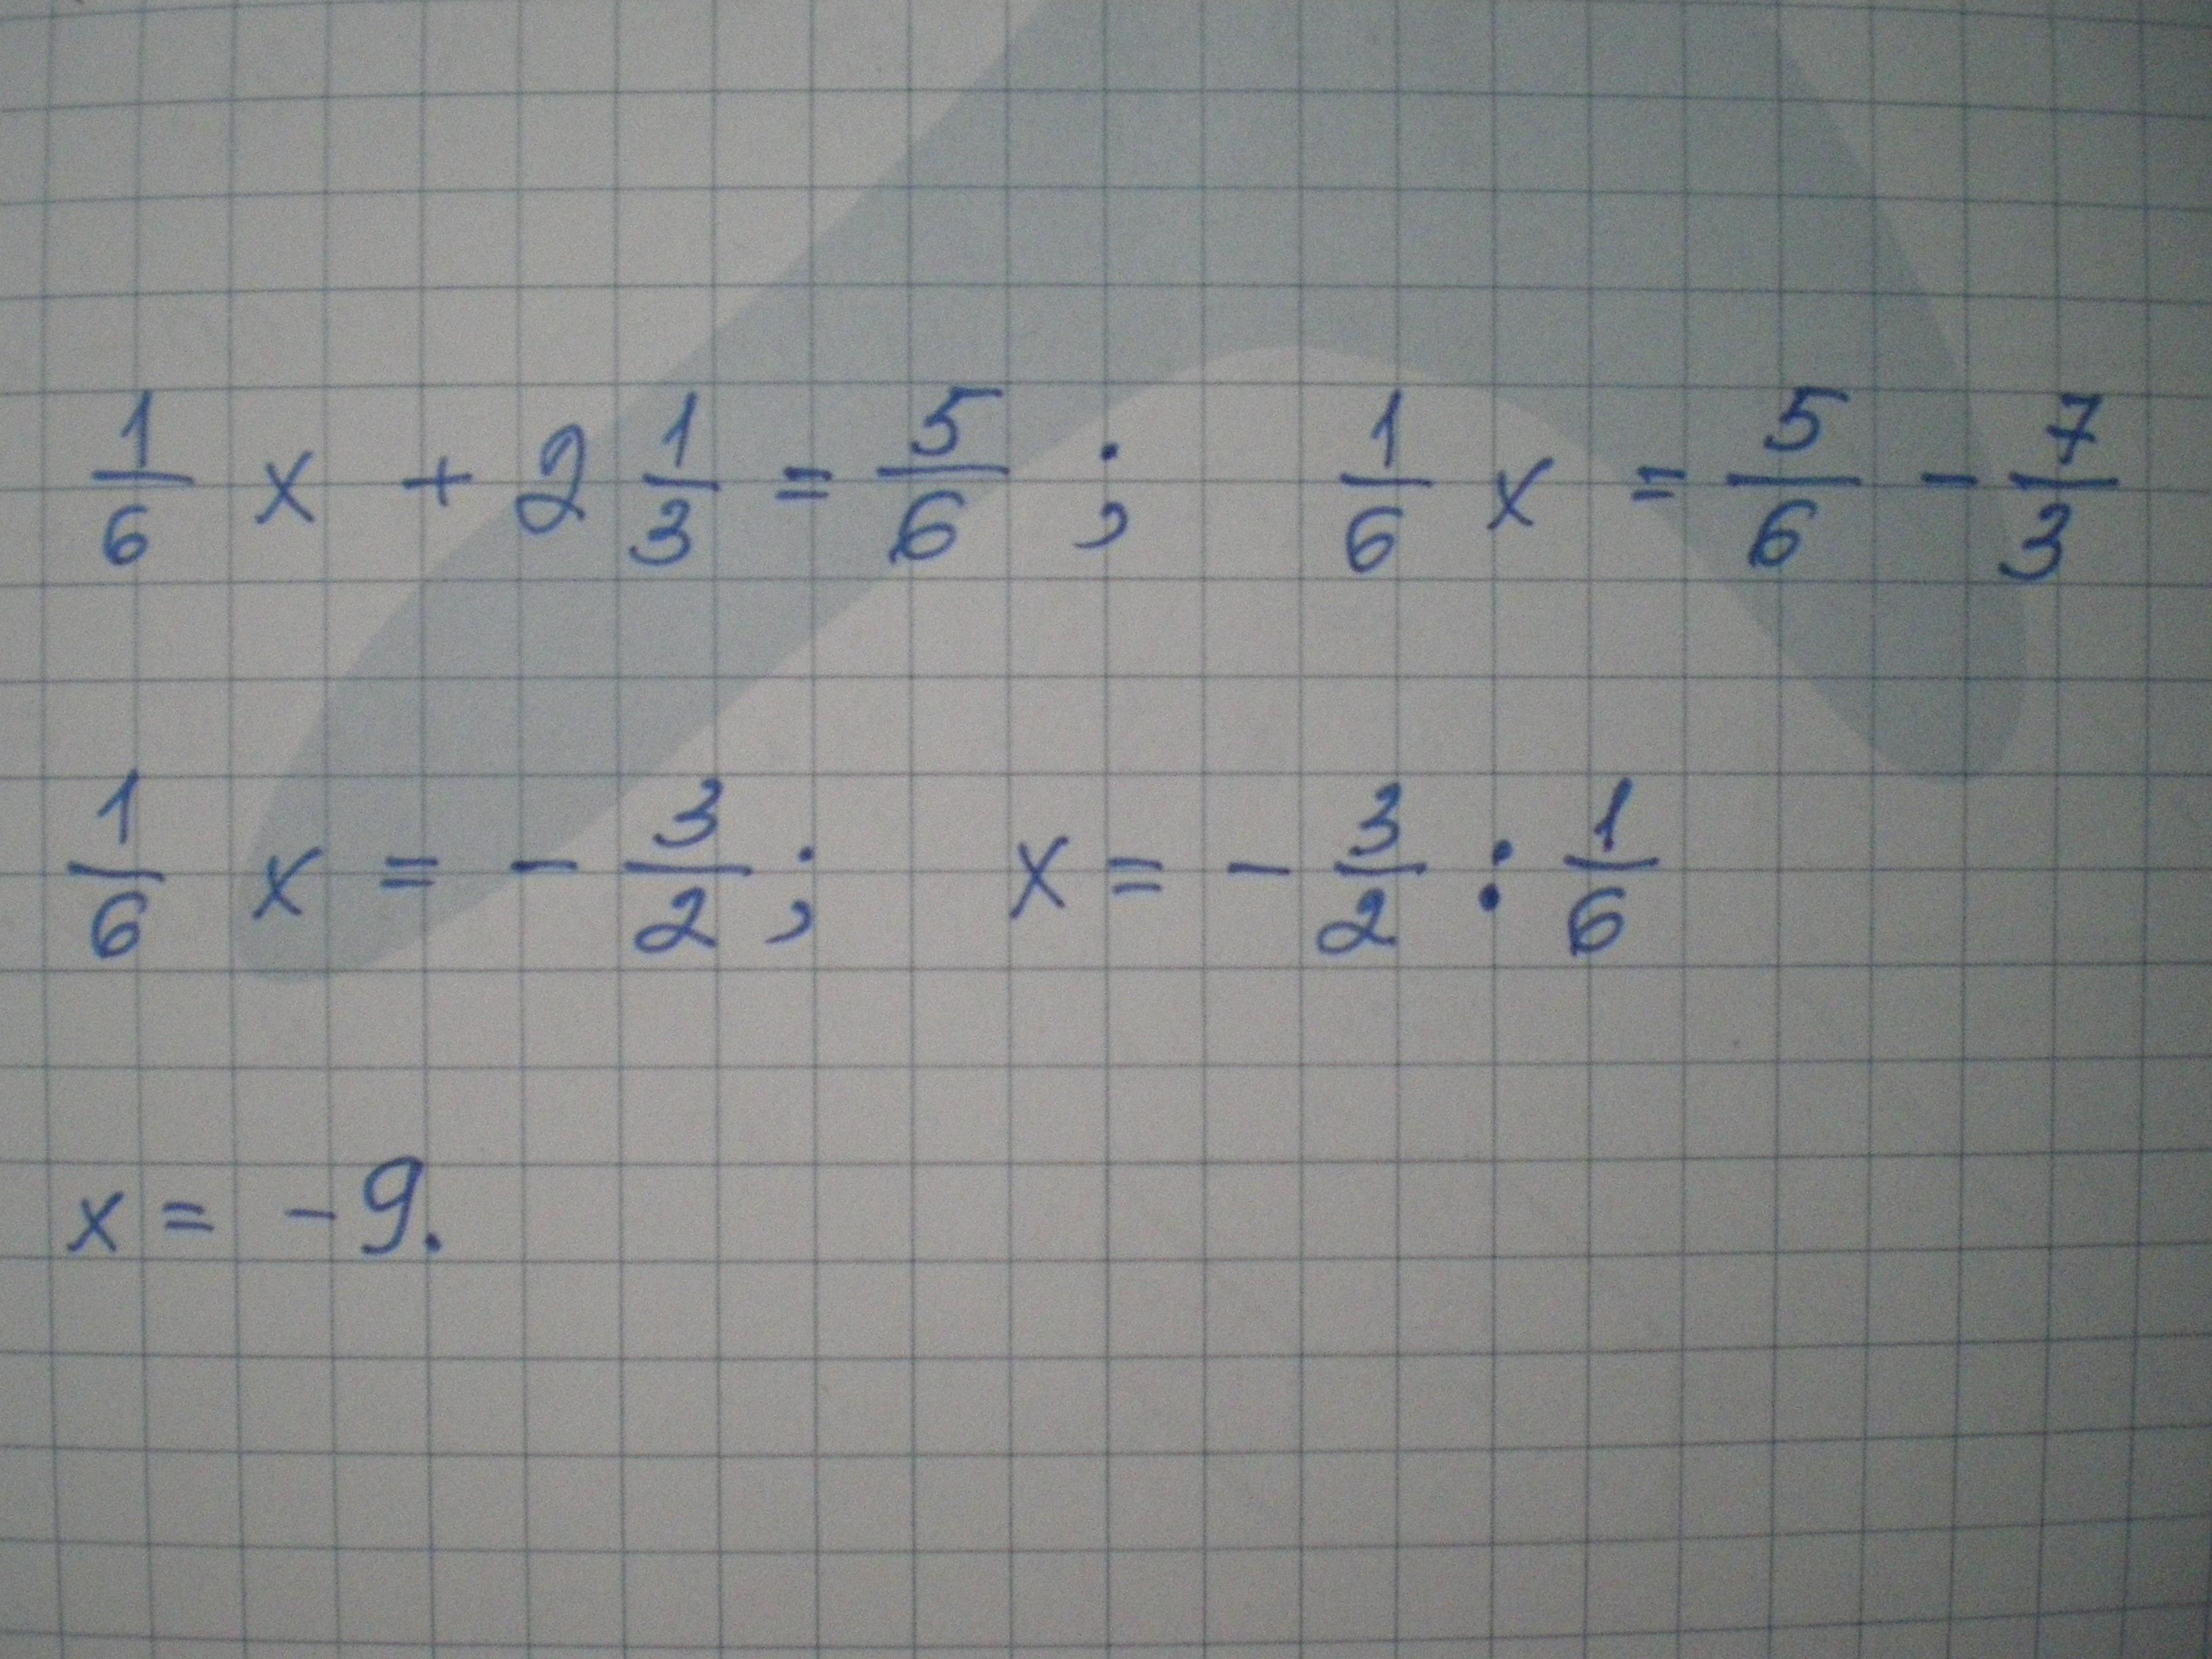 1/6 x + 2 1/3 = 5/6 ; 1/6 x = 5/6 - 7/3
1/6 x = - 3/2 ; x = - 3/2 : 1/6
x = - 9.